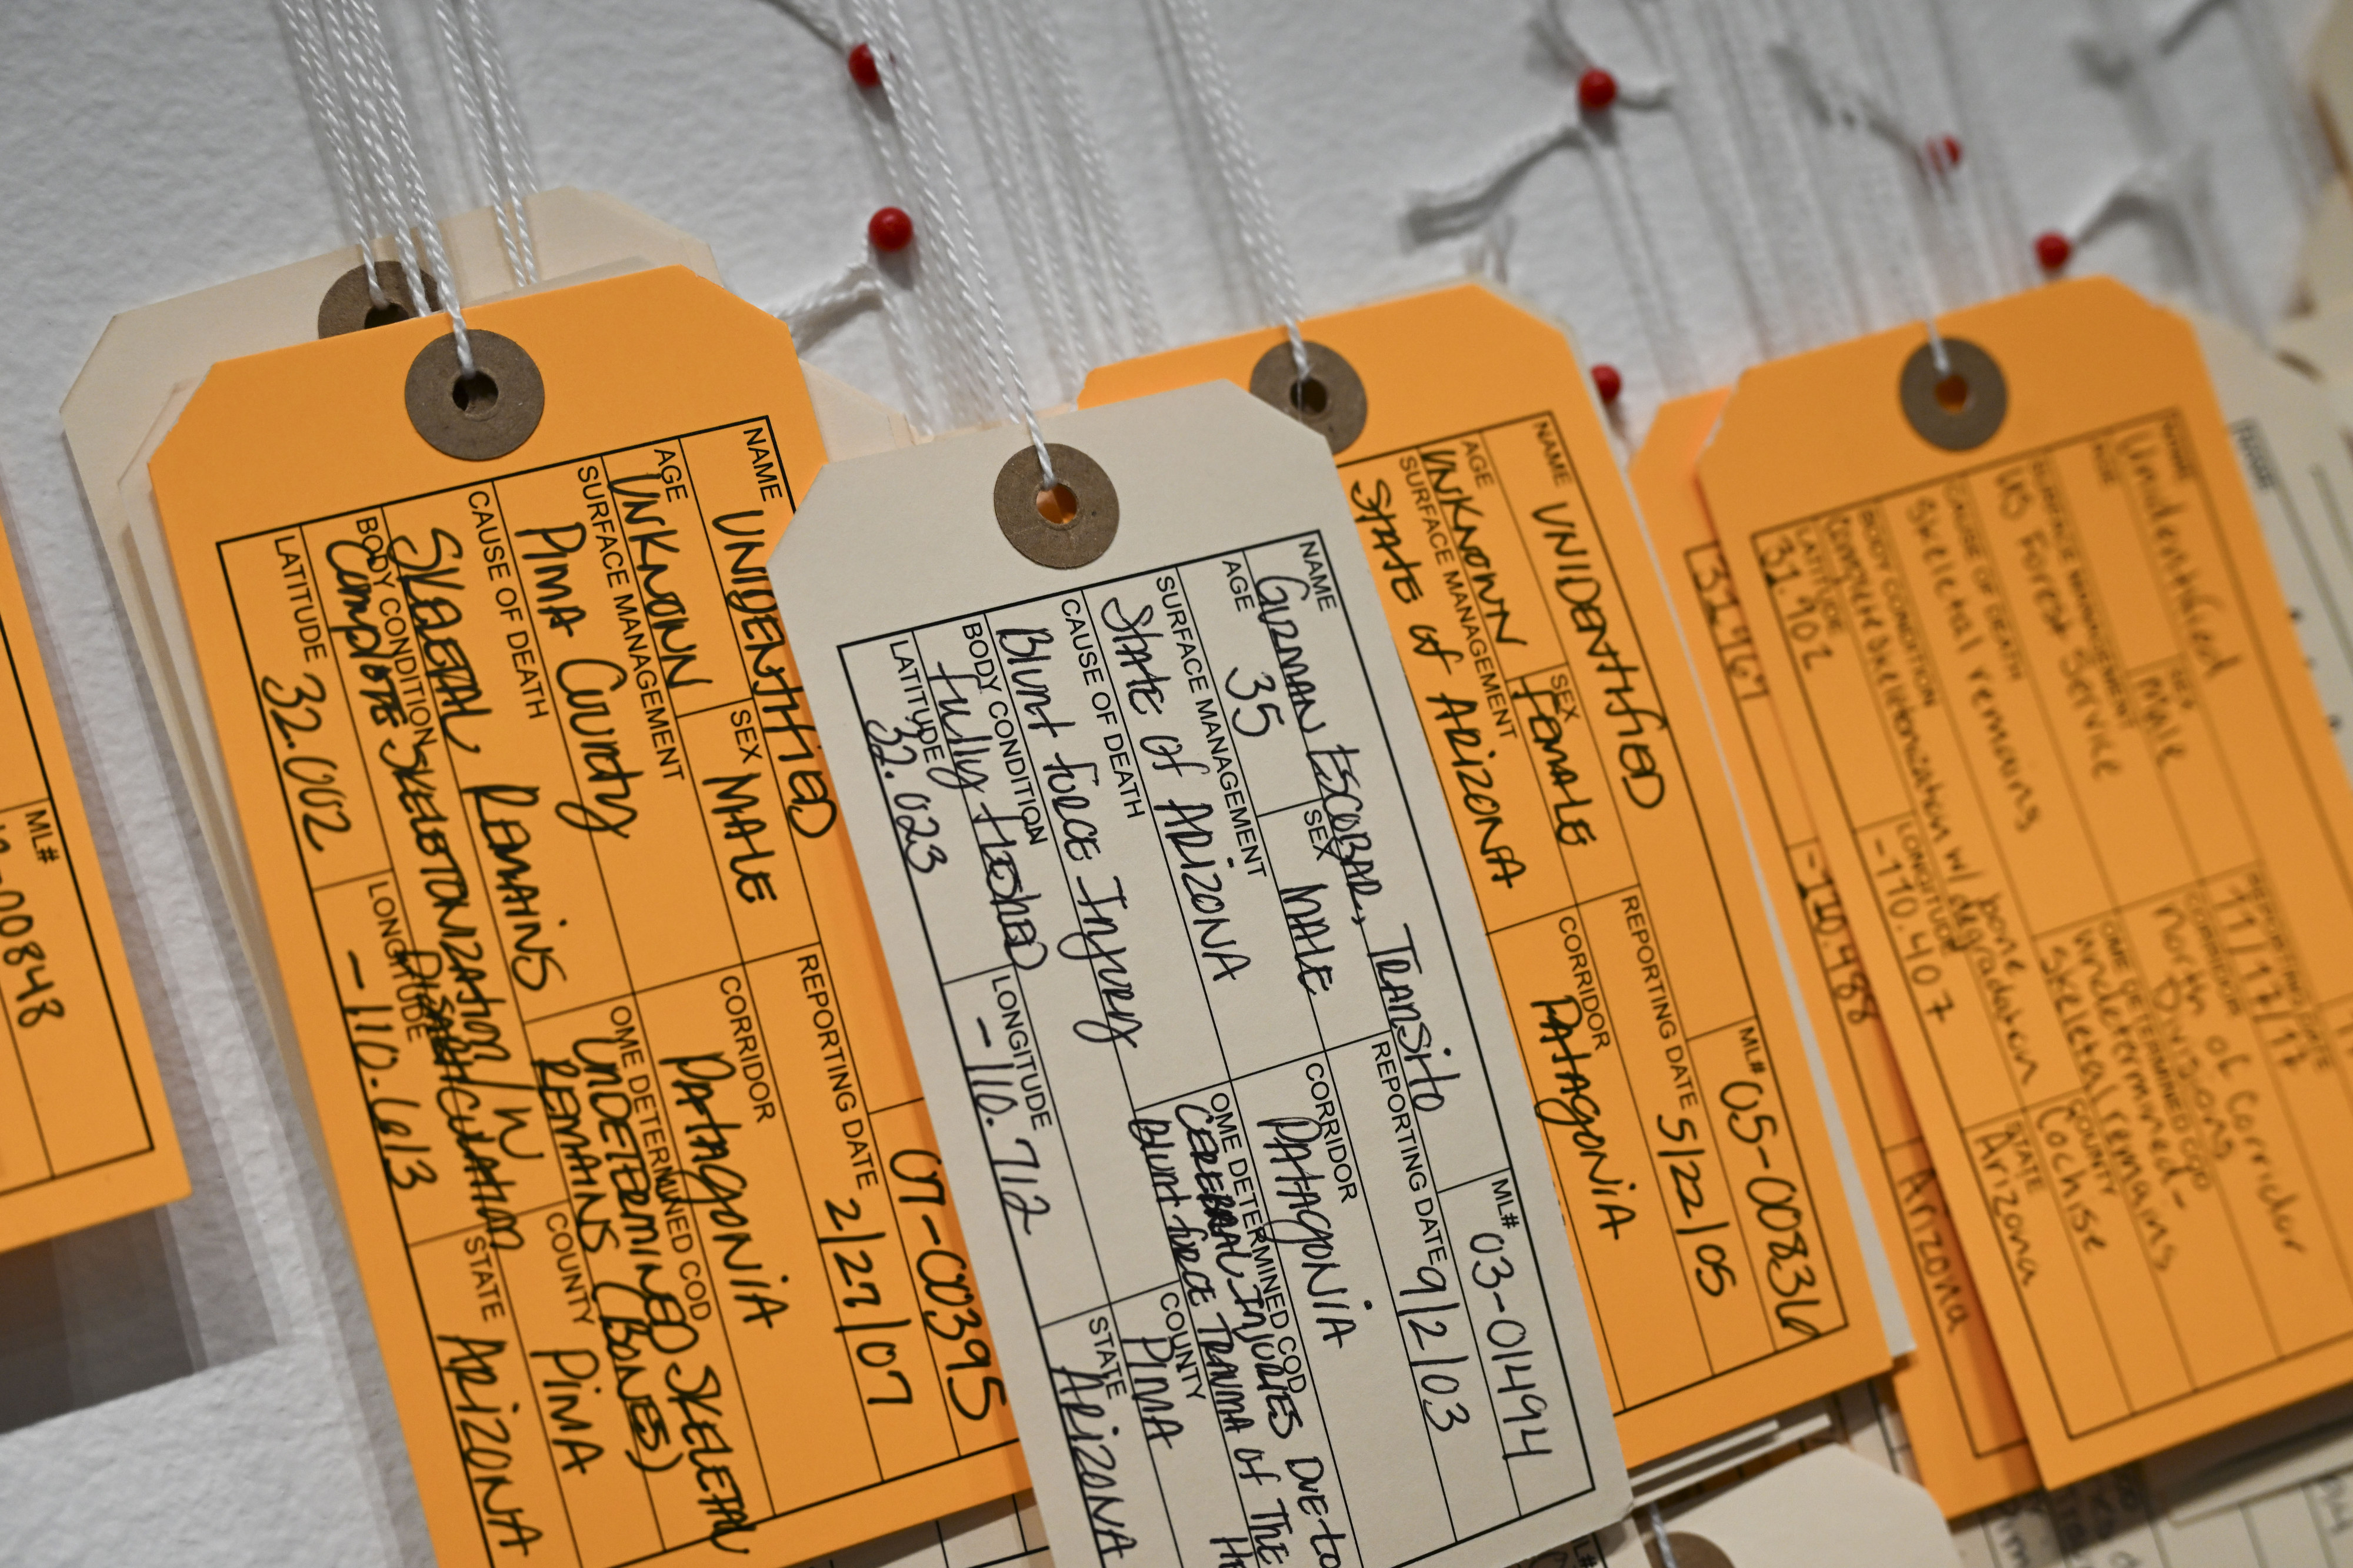 ML#
-00848
NAME UNIDENTIFIED
07-00395
AGE UNKNOWN SEX MALE
REPORTING DATE 2/27/07
SURFACE MANAGEMENT PIMA County
CORRIDOR PATAGONIA
CAUSE OF DEATH SKLETAL REMAINS
OME DETERMINED COD UNDETERMINED SKELETAL REMAINS (BONES)
BODY CONDITION Complete SKELETONIZATION/W DISARTICULATION
COUNTY PIMA
LATITUDE 32.002
LONGITUDE -110.613
STATE ARIZONA
NAME GUZMAN ESCOBAR, TRANSITO
ML# 03-01494
AGE 35 SEX MALE
REPORTING DATE 9/2/03
SURFACE MANAGEMENT STATE of ARIZONA
CORRIDOR PATAGONIA
CAUSE OF DEATH Blunt force Injury
OME DETERMINED COD CEREBRAL INJURIES DUE to
Blunt force TRAUMA of THE
BODY CONDITION fully fleshed
COUNTY PIMA
LATITUDE 32.023
LONGITUDE -110.712
STATE ARIZONA
NAME UNIDENTIFIED
ML# 05-00836
AGE UNKNOWN SEX FEMALE
REPORTING DATE 5/22/05
SURFACE MANAGEMENT STATE of ARIZONA
CORRIDOR PATAGONIA
31.967
-110.488
Arizona
NAME Unidentified
AGE SEX Male
REPORTING DATE 11/17/17
SURFACE MANAGEMENT US Forest Service
CORRIDOR North of Corridor Divisions
CAUSE OF DEATH Skeletal remains
OME DETERMINED COD undetermined- skeletal remains
BODY CONDITION Complete skeletonization w/ bone degradation
COUNTY Cochise
LATITUDE 31.902
LONGITUDE -110.407
STATE Arizona
NAME
ML#